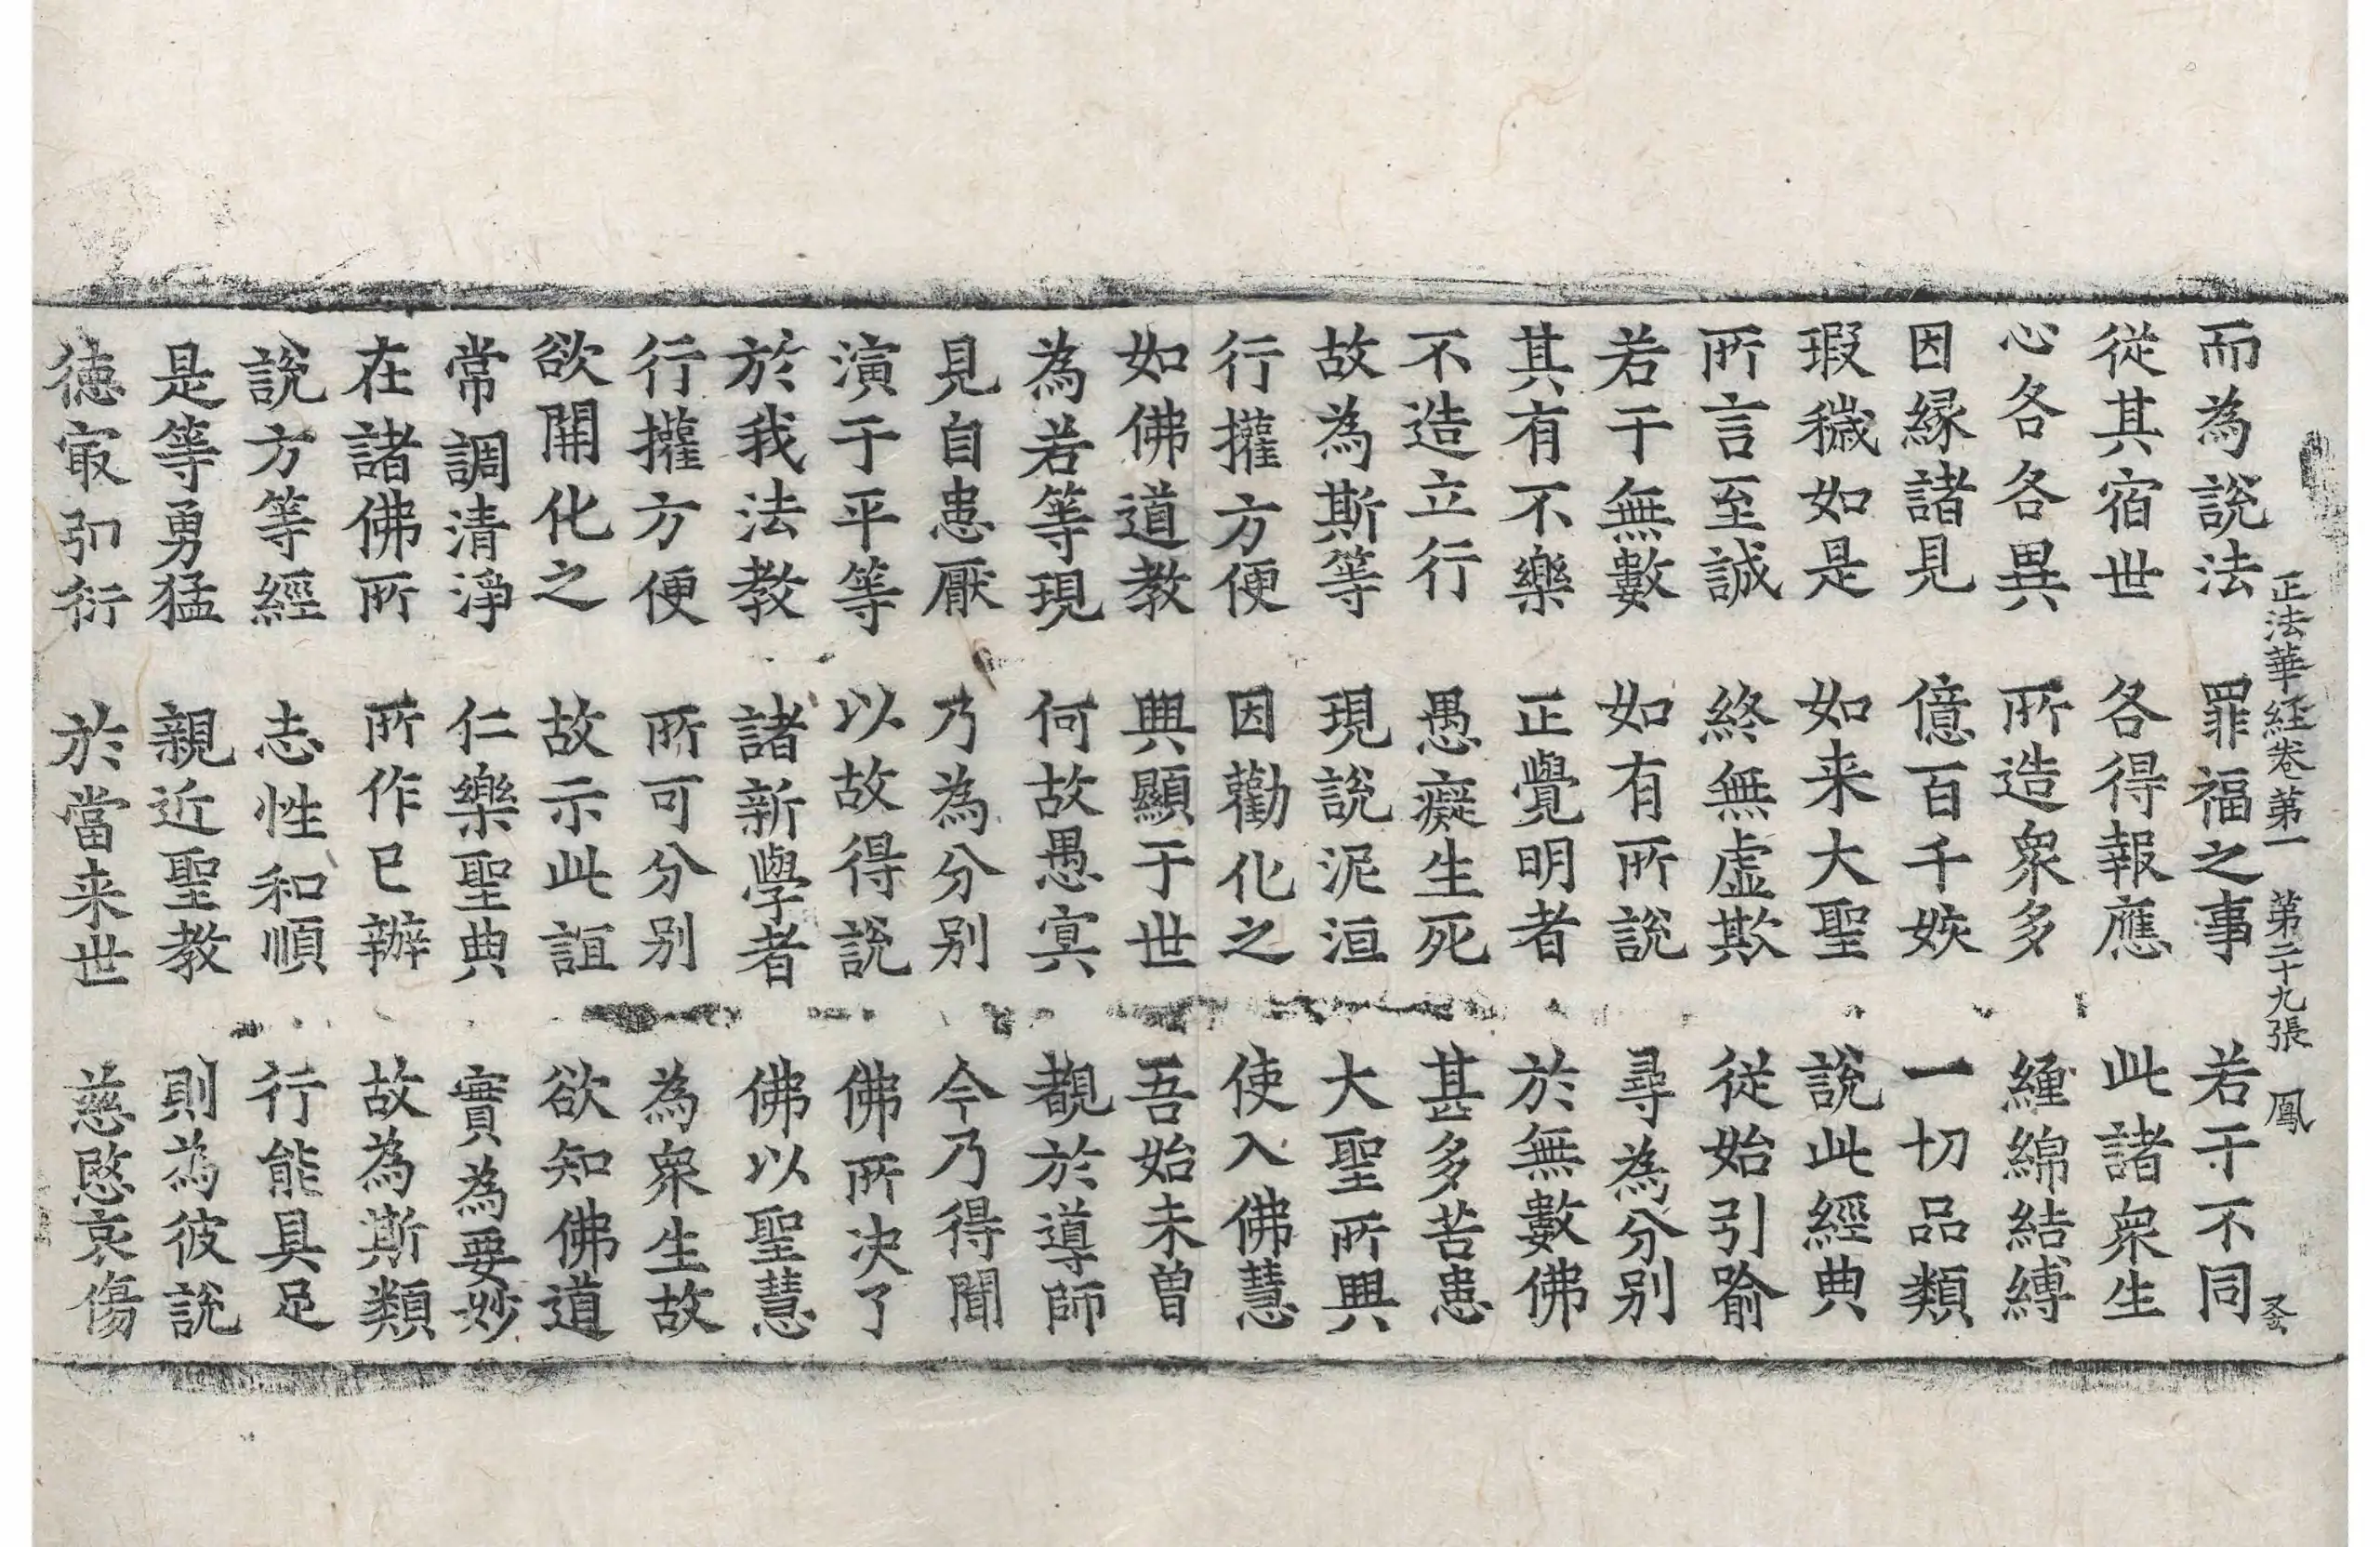 正法華経卷第一　第二十九張　鳳
而為說法　罪福之事　若干不同
從其宿世　各得報應　此諸衆生
心各各異　所造衆多　纏綿結縛
因緣諸見　億百千姟　一切品類
瑕穢如是　如来大聖　說此經典
所言至誠　終無虛欺　從始引喻
若干無數　如有所說　尋為分別
其有不樂　正覺明者　於無數佛
不造立行　愚癡生死　甚多苦患
故為斯等　現說泥洹　大聖所興
行攉方便　因勸化之　使入佛慧
如佛道教　興顯于世　吾始未曾
為若等現　何故愚寘　覩於導師
見自患厭　乃為分別　今乃得聞
演于平等　以故得說　佛所决了
於我法教　諸新學者　佛以聖慧
行攉方便　所可分別　為衆生故
欲開化之　故示此誼　欲知佛道
常調清淨　仁樂聖典　實為要妙
在諸佛所　所作已辦　故為斯類
說方等經　志性和順　行能具足
是等勇猛　親近聖教　則為彼說
德㝡弘衍　於當来世　慈愍哀傷